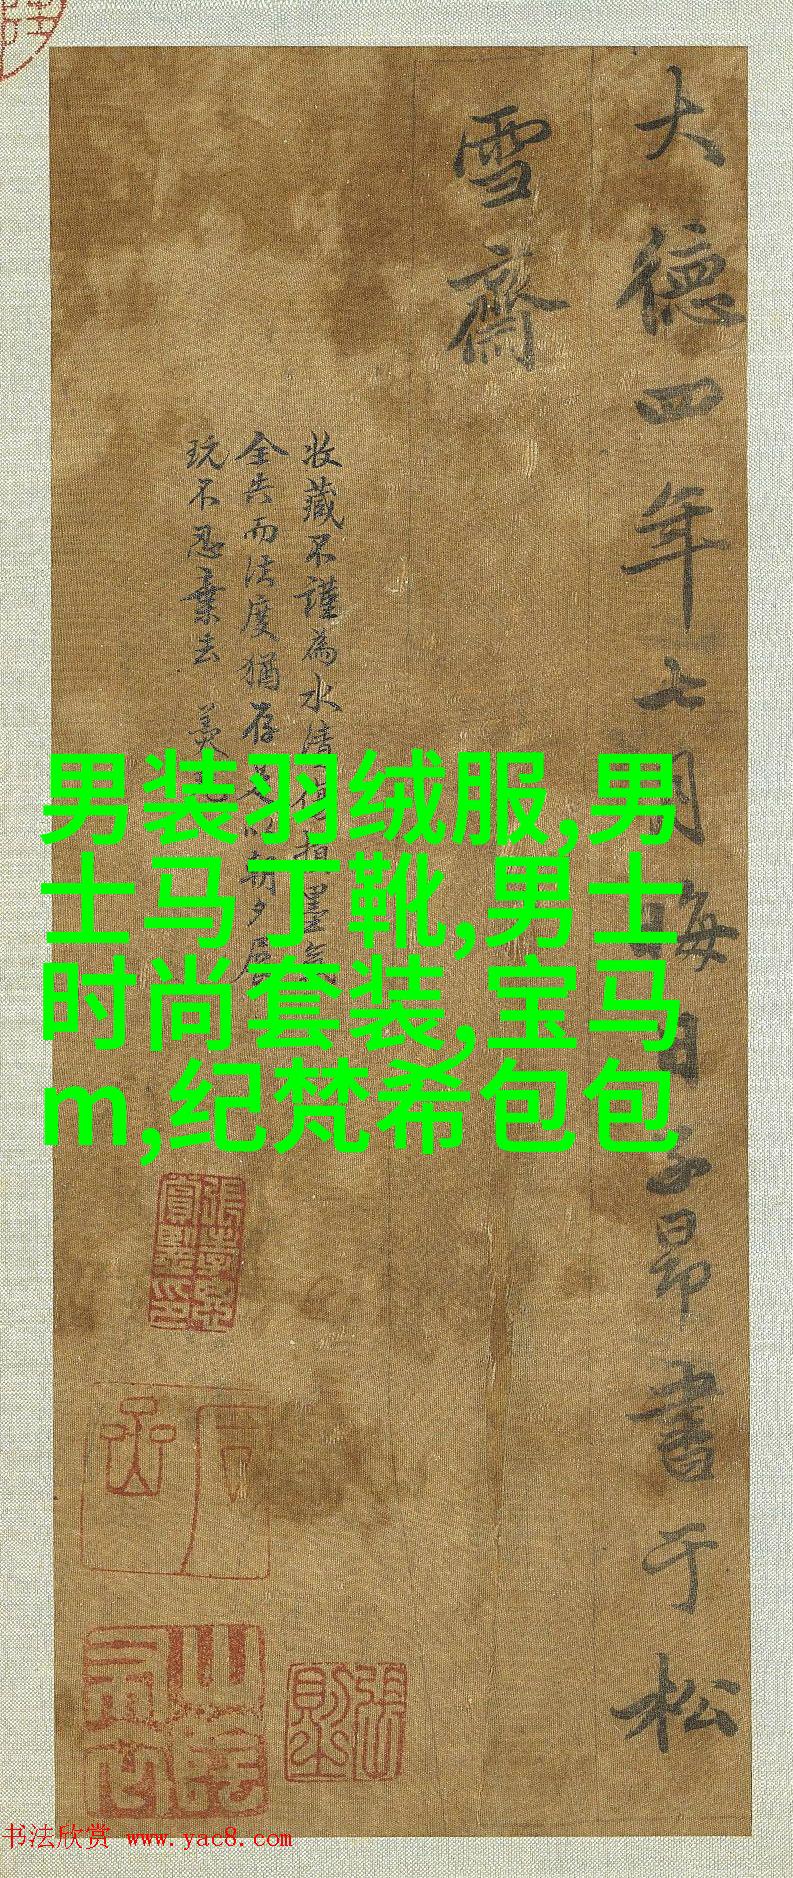 大德四年七月晦日子昂書于松
雪齋
收藏不謹為水漬得拍墨氣
全失而法度猶存
玩不忍棄去
男装羽绒服,男
士马丁靴,男士
时尚套装,宝马
m,纪梵希包包
书法欣赏 www.yac8.com